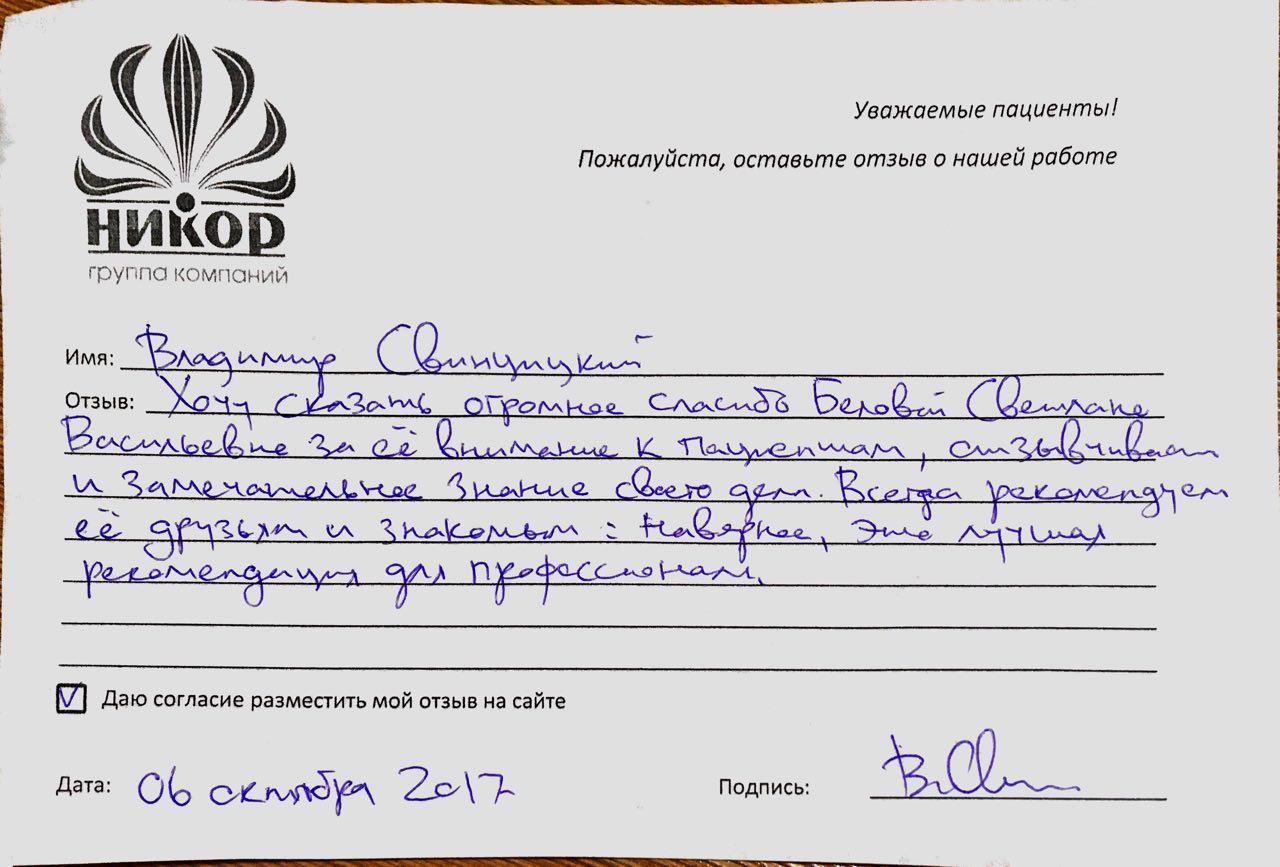 НИКОР
группа компаний
Уважаемые пациенты!
Пожалуйста, оставьте отзыв о нашей работе
Имя: Владимир Свинцицкий
Отзыв: Хочу сказать огромное спасибо Беловой Светлане
Васильевне за её внимание к пациентам, отзывчивость
и замечательное знание своего дела. Всегда рекомендуем
её друзьям и знакомым: наверное, это лучшая
рекомендация для профессионала.
Даю согласие разместить мой отзыв на сайте
Дата: 06 октября 2017
Подпись: